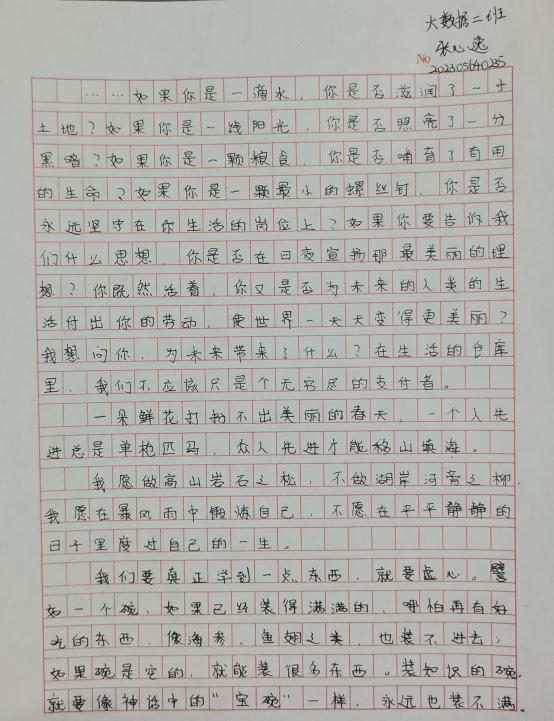 大数据二班
张心逸
No
202305640235
……如果你是一滴水，你是否滋润了一寸
土地？如果你是一线阳光，你是否照亮了一分
黑暗？如果你是一颗粮食，你是否哺育了有用
的生命？如果你是一颗最小的螺丝钉，你是否
永远坚守在你生活的岗位上？如果你要告诉我
们什么思想，你是否在日夜宣扬那最美丽的理
想？你既然活着，你又是否为未来的人类的生
活付出你的劳动，使世界一天天变得更美丽？
我想问你，为未来带来了什么？在生活的仓库
里，我们不应该只是个无穷尽的支付者。
一朵鲜花打扮不出美丽的春天，一个人先
进总是单枪匹马，众人先进才能移山填海。
我愿做高山岩石之松，不做湖岸河旁之柳，
我愿在暴风雨中锻炼自己，不愿在平平静静的
日子里度过自己的一生。
我们要真正学到一点东西，就要虚心。譬
如一个碗，如果已经装得满满的，哪怕再有好
吃的东西，像海参、鱼翅之类，也装不进去；
如果碗是空的，就能装很多东西。装知识的碗，
就要像神话中的“宝碗”一样，永远也装不满。